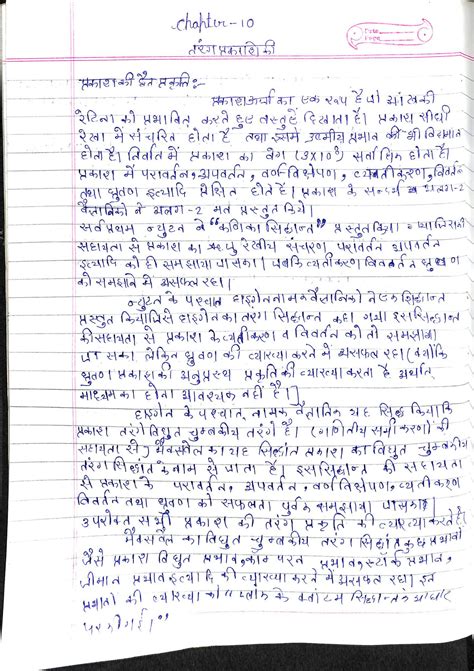 Chapter-10
तरंग प्रकाशिकी
प्रकाश की द्वैत प्रकृति:-
प्रकाश ऊर्जा का एक रूप है जो आंख की
रेटिना को प्रभावित करते हुए वस्तुएँ दिखाता है। प्रकाश सीधी
रेखा में संचरित होता है तथा इसमें उष्मीय प्रभाव भी विद्यमान
होता है। निर्वात में प्रकाश का वेग (3x10⁸) सर्वाधिक होता है।
प्रकाश में परावर्तन, अपवर्तन, वर्ण विक्षेपण, व्यतीकरण, विवर्तन
तथा ध्रुवण इत्यादि प्रेक्षित होते हैं। प्रकाश के सन्दर्भ में अलग-2
वैज्ञानिकों ने अलग-2 मत प्रस्तुत किये।
सर्वप्रथम न्युटन ने "कणिका सिद्धान्त" प्रस्तुत किया। जिसकी
सहायता से प्रकाश का ऋजु रेखीय संचरण, परावर्तन अपवर्तन
इत्यादि को ही समझाया जा सका। जबकि व्यतीकरण विवर्तन ध्रुवण
को समझाने में असफल रहा।
न्युटन के पश्चात हाइगेन नामक वैज्ञानिको ने एक सिद्धान्त
प्रस्तुत किया जिसे हाइगेन का तरंग सिद्धान्त कहा गया इस सिद्धान्त
की सहायता से प्रकाश के व्यतीकरण व विवर्तन को तो समझाया
जा सका लेकिन ध्रुवण की व्याख्या करने में असफल रहा (क्योंकि
ध्रुवण प्रकाश की अनुप्रस्थ प्रकृति की व्याख्या करता है अर्थात्
माध्यम का होना आवश्यक नहीं है।]
हाइगेन के पश्चात् नामक वैज्ञानिक यह सिद्ध किया कि
प्रकाश तरंगे विधुत चुम्बकीय तरंगे है। (गणितीय समीकरण) की
सहायता से) मैक्सवेल का यह सिद्धांत प्रकाश का विधुत चुम्बकीय
तरंग सिद्धांत के नाम से जाता है। इस सिद्धान्त की सहायता
से प्रकाश के परावर्तन, अपवर्तन, वर्ण विक्षेपण, व्यतीकरण
विवर्तन तथा ध्रुवण को सफलता पुर्वक समझाया जा सका।
उपरोक्त सभी प्रकाश की तरंग प्रकृति की व्याख्या करते है।
मैक्सवेल का विधुत चुम्बकीय तरंग सिद्धांत कुछ प्रभावों
जैसे प्रकाश विधुत प्रभाव, काम्पटन प्रभाव, स्टॉर्क प्रभाव,
जीमान प्रभाव इत्यादि की व्याख्या करने में असफल रहा। इन
प्रभावों की व्याख्या प्लांक के क्वांटम सिद्धान्त के आधार
पर की गई।